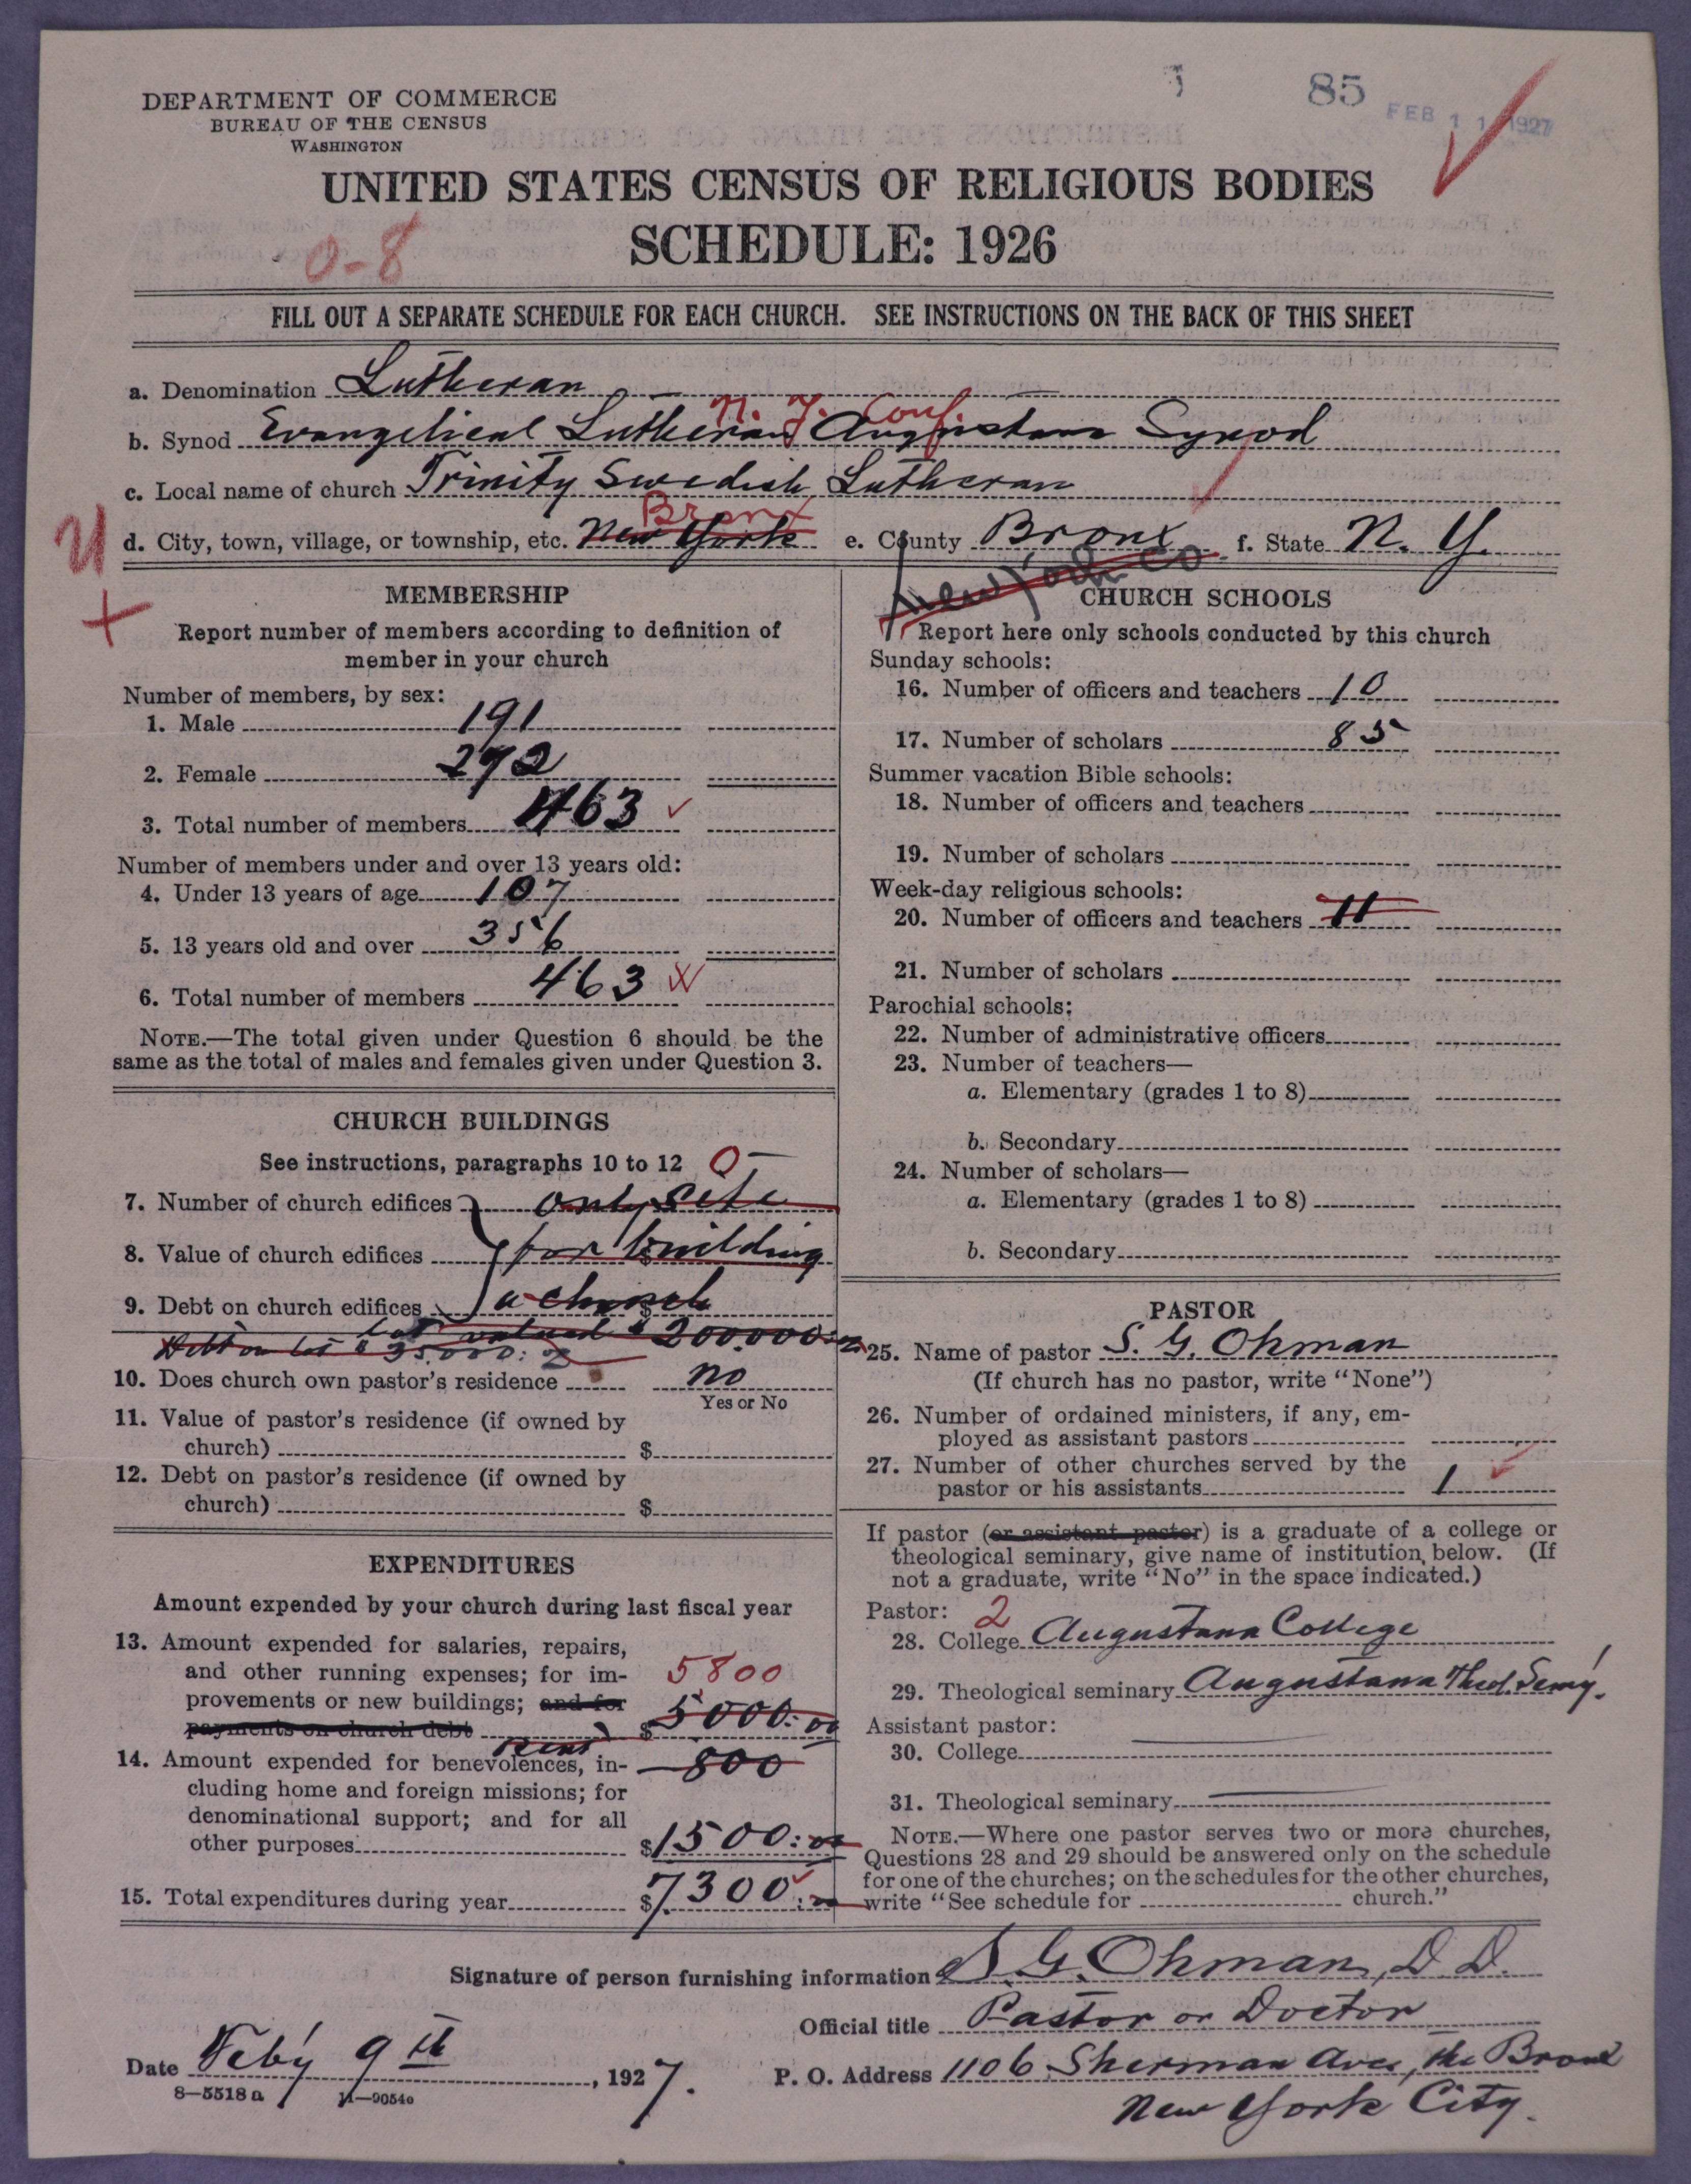 85
FEB 11 1927
DEPARTMENT OF COMMERCE
BUREAU OF THE CENSUS
WASHINGTON
UNITED STATES CENSUS OF RELIGIOUS BODIES
0-8
SCHEDULE: 1926
FILL OUT A SEPARATE SCHEDULE FOR EACH CHURCH. SEE INSTRUCTIONS ON THE BACK OF THIS SHEET
a. Denomination Lutheran
N. Y. Conf.
b. Synod Evangelical Lutheran Augustana Synod
c. Local name of church Trinity Swedish Lutheran
Bronx
d. City, town, village, or township, etc. New York e. County Bronx f. State N. Y.
New York Co
MEMBERSHIP
Report number of members according to definition of
member in your church
Number of members, by sex:
1. Male 191
2. Female 272
3. Total number of members 463
Number of members under and over 13 years old:
4. Under 13 years of age 107
5. 13 years old and over 356
6. Total number of members 463
NOTE.—The total given under Question 6 should be the
same as the total of males and females given under Question 3.
CHURCH BUILDINGS
See instructions, paragraphs 10 to 12 0
7. Number of church edifices only site
8. Value of church edifices for building $
9. Debt on church edifices a church $
lot valued $200.000:
Debt on lot $35.000:
10. Does church own pastor's residence no
Yes or No
11. Value of pastor's residence (if owned by
church) $
12. Debt on pastor's residence (if owned by
church) $
EXPENDITURES
Amount expended by your church during last fiscal year
13. Amount expended for salaries, repairs,
and other running expenses; for im- 5800
provements or new buildings; and for
payments on church debt $5000:00
rent 800
14. Amount expended for benevolences, in-
cluding home and foreign missions; for
denominational support; and for all
other purposes $1500:00
15. Total expenditures during year $7300:
CHURCH SCHOOLS
Report here only schools conducted by this church
Sunday schools:
16. Number of officers and teachers 10
17. Number of scholars 85
Summer vacation Bible schools:
18. Number of officers and teachers
19. Number of scholars
Week-day religious schools:
20. Number of officers and teachers 11
21. Number of scholars
Parochial schools:
22. Number of administrative officers
23. Number of teachers—
a. Elementary (grades 1 to 8)
b. Secondary
24. Number of scholars—
a. Elementary (grades 1 to 8)
b. Secondary
PASTOR
25. Name of pastor S. G. Ohman
(If church has no pastor, write "None")
26. Number of ordained ministers, if any, em-
ployed as assistant pastors
27. Number of other churches served by the
pastor or his assistants 1
If pastor (or assistant pastor) is a graduate of a college or
theological seminary, give name of institution below. (If
not a graduate, write "No" in the space indicated.)
Pastor: 2
28. College Augustana College
29. Theological seminary Augustana Theol. Semy.
Assistant pastor:
30. College
31. Theological seminary
NOTE.—Where one pastor serves two or more churches,
Questions 28 and 29 should be answered only on the schedule
for one of the churches; on the schedules for the other churches,
write "See schedule for church."
Signature of person furnishing information S. G. Ohman, D. D.
Official title Pastor or Doctor
Date Feb'y 9th, 1927.
P. O. Address 1106 Sherman Ave, the Bronx
New York City.
8-5518 a 11-9054o